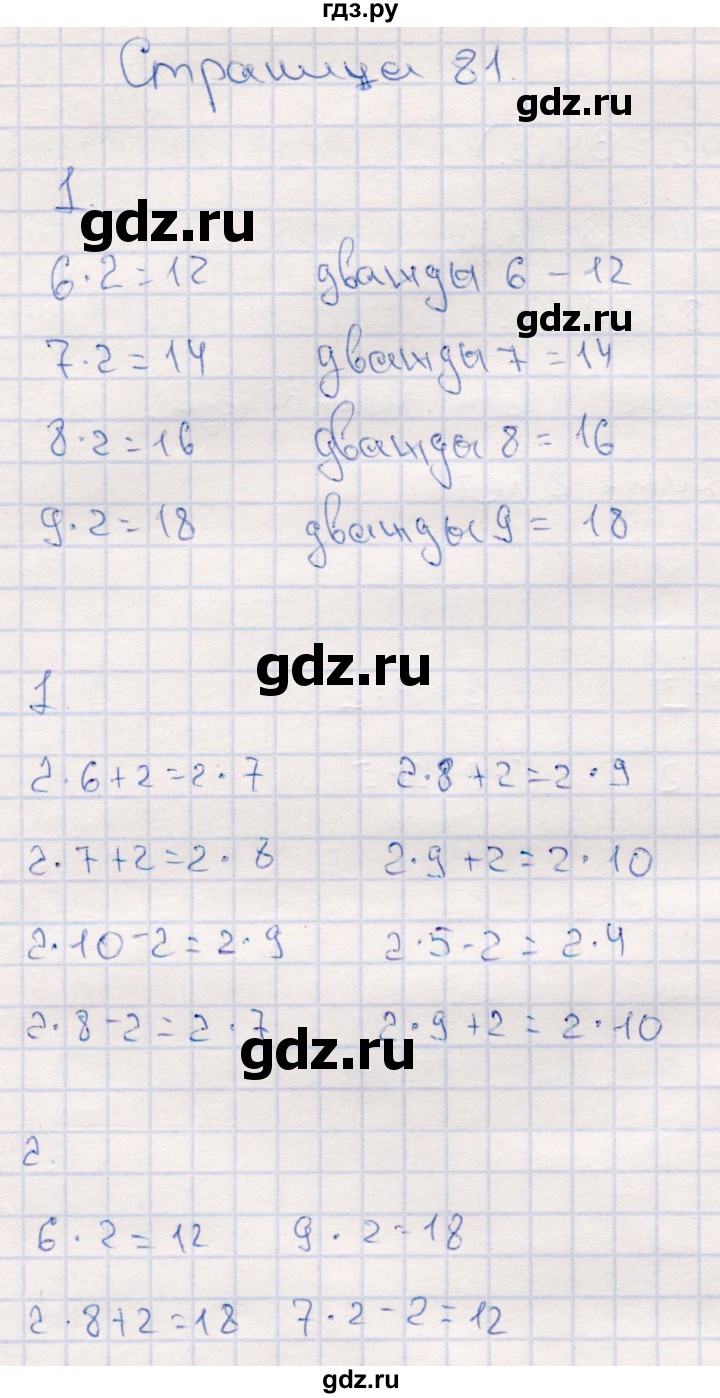 гдз.ру
Страница 81.
gdz.ru
1.
gdz.ru
6·2=12 дважды 6 – 12
gdz.ru
7·2=14 дважды 7 = 14
8·2=16 дважды 8 = 16
9·2=18 дважды 9 = 18
gdz.ru
1
2·6+2=2·7 2·8+2=2·9
2·7+2=2·8 2·9+2=2·10
2·10-2=2·9 2·5-2=2·4
2·8-2=2·7 2·9+2=2·10
gdz.ru
2.
6·2=12 9·2=18
2·8+2=18 7·2-2=12
gdz.ru